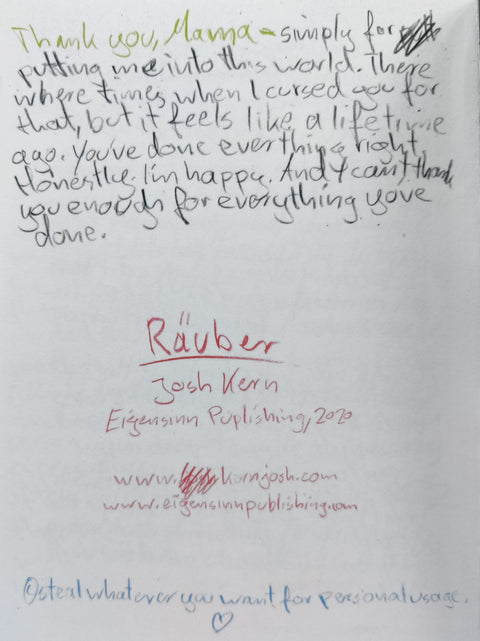 Thank you, Mama - simply for
putting me into this world. There
where times when I cursed you for
that, but it feels like a lifetime
ago. You've done everthing right.
Honestly. I'm happy. And I can't thank
you enough for everything youve
done.
Räuber
Josh Kern
Eigensinn Puplishing, 2020
www.kernjosh.com
www.eigensinnpublishing.com
@steal whatever you want for personal usage.
♡